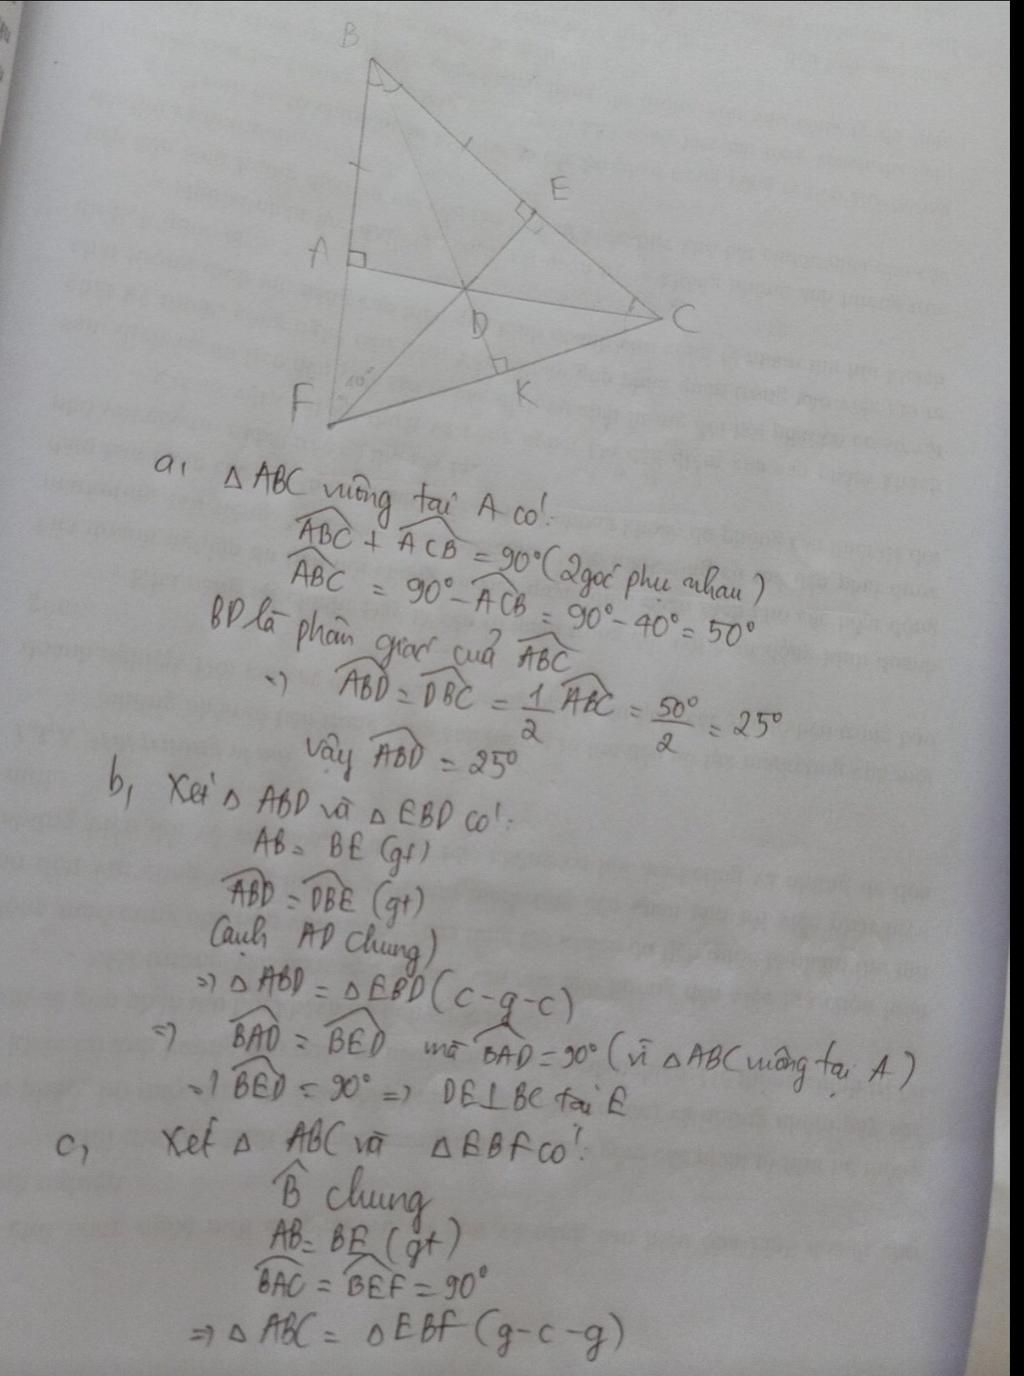 B
E
A
D
C
40°
F
K
a, △ ABC vuông tại A có:
$\widehat{ABC} + \widehat{ACB} = 90°$ (2 góc phụ nhau)
$\widehat{ABC} = 90° - \widehat{ACB} = 90° - 40° = 50°$
BD là phân giác của $\widehat{ABC}$
=> $\widehat{ABD} = \widehat{DBC} = \frac{1}{2} \widehat{ABC} = \frac{50°}{2} = 25°$
vậy $\widehat{ABD} = 25°$
b, Xét △ ABD và △ EBD có:
AB = BE (gt)
$\widehat{ABD} = \widehat{DBE}$ (gt)
Cạnh AD chung)
=> △ ABD = △ EBD (c-g-c)
=> $\widehat{BAD} = \widehat{BED}$ mà $\widehat{BAD} = 90°$ (vì △ ABC vuông tại A)
=> $\widehat{BED} = 90°$ => DE⊥BC tại E
c, Xét △ ABC và △ EBF có:
$\widehat{B}$ chung
AB = BE (gt)
$\widehat{BAC} = \widehat{BEF} = 90°$
=> △ ABC = △ EBF (g-c-g)